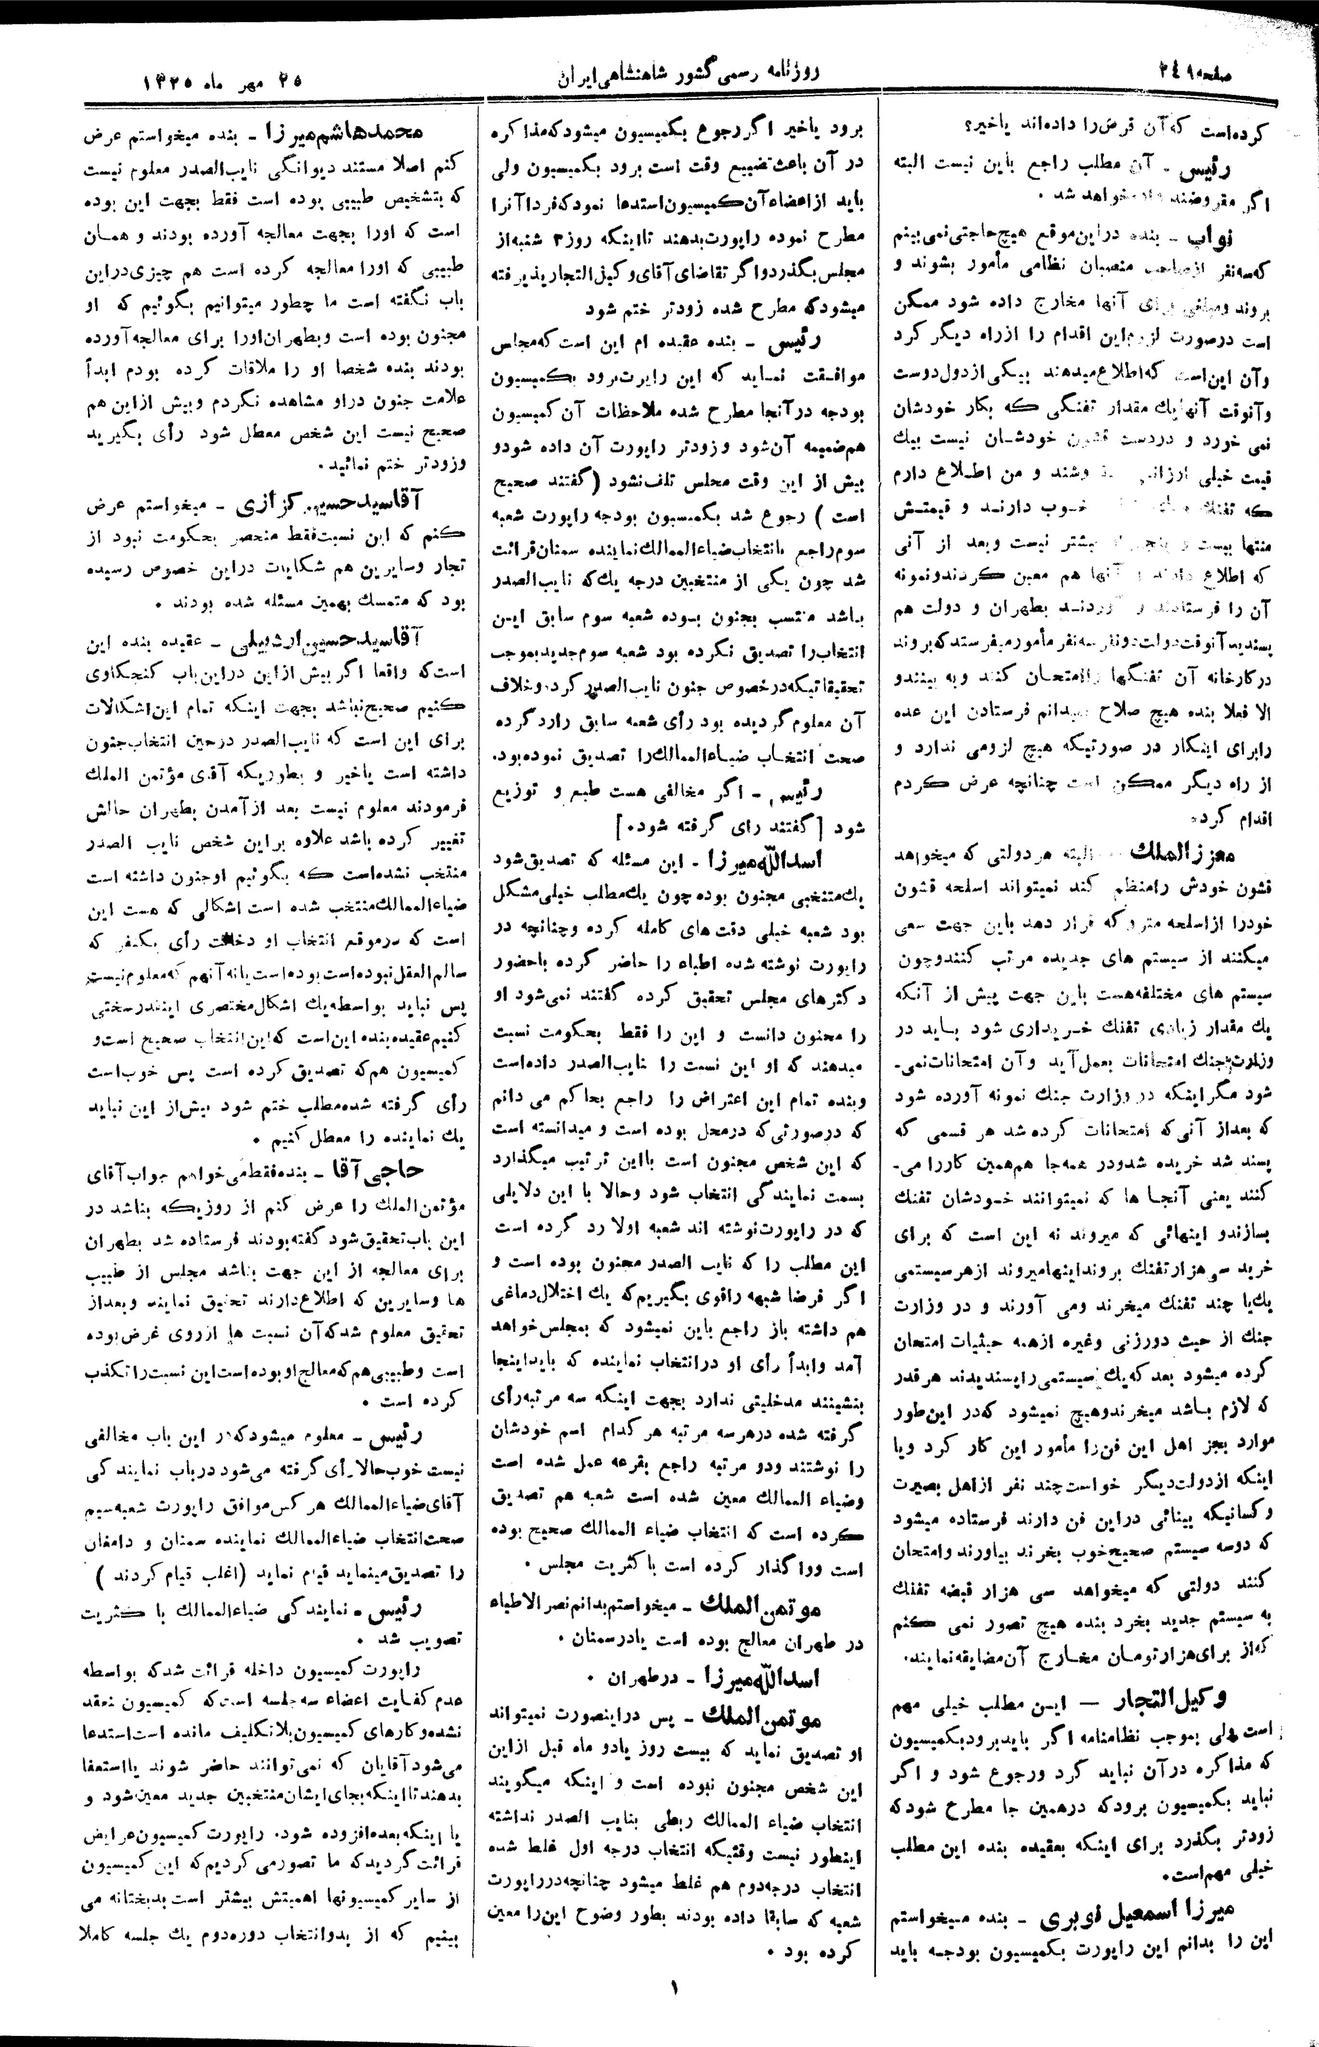 صفحه ۲۴۹
روزنامه رسمی کشور شاهنشاهی ایران
۲۵ مهر ماه ۱۳۲۵
کرده‌است که آن قرض را داده‌اند یاخیر؟
رئیس ـ آن مطلب راجع باین نیست البته
اگر مقروضند خواهد شد .
نواب ـ بنده دراین موقع هیچ حاجتی نمی بینم
که سه نفر از صاحب منصبان نظامی مأمور بشوند و
بروند و مبلغی برای آنها مخارج داده شود ممکن
است درصورت لزوم این اقدام را ازراه دیگر کرد
وآن این است که اطلاع میدهند بیکی از دول دوست
وآنوقت آنها یك مقدار تفنگی که بکار خودشان
نمی خورد و دردست قشون خودشان نیست بیك
قیمت خیلی ارزانی وشند و من اطلاع دارم
که تفنك خوب دارند و قیمتش
منتها بیست و پنج بیشتر نیست وبعد از آنی
که اطلاع دادند و آنها هم معین کردند ونمونه
آن را فرستادند و آوردند بطهران و دولت هم
پسندید آنوقت دولت دونفر سه نفر مأمور میفرستد که بروند
درکارخانه آن تفنگها را امتحان کنند و به بینند و
الا فعلا بنده هیچ صلاح نمیدانم فرستادن این عده
را برای اینکار در صورتیکه هیچ لزومی ندارد و
از راه دیگر ممکن است چنانچه عرض کردم
اقدام کرد.
معزز الملك البته هر دولتی که میخواهد
قشون خودش را منظم کند نمیتواند اسلحه قشون
خودرا از اسلحه متروکه قرار دهد باین جهت سعی
میکنند از سیستم های جدیده مرتب کنند وچون
سیستم های مختلفه هست باین جهت پیش از آنکه
یك مقدار زیادی تفنك خریداری شود باید در
وزارت جنك امتحانات بعمل آید وآن امتحانات نمی‌ـ
شود مگر اینکه در وزارت جنك نمونه آورده شود
که بعداز آنی که امتحانات کرده شد هر قسمی که
پسند شد خریده شود در همه جا هم همین کاررا می‌ـ
کنند یعنی آنجا ها که نمیتوانند خودشان تفنك
بسازند و اینهائی که میروند نه این است که برای
خرید سی هزار تفنك بروند اینها میروند از هر سیستمی
یك یا چند تفنك میخرند ومی آورند و در وزارت
جنك از حیث دورزنی وغیره ازهمه حیثیات امتحان
کرده میشود بعد که یك سیستمی را پسندیدند هرقدر
که لازم باشد میخرند وهیچ نمیشود که در این طور
موارد بجز اهل این فن را مأمور این کار کرد ویا
اینکه از دولت دیگر خواست چند نفر از اهل بصیرت
و کسانیکه بینائی دراین فن دارند فرستاده میشود
که دوسه سیستم صحیح خوب بخرند بیاورند وامتحان
کنند دولتی که میخواهد سی هزار قبضه تفنك
به سیستم جدید بخرد بنده هیچ تصور نمی کنم
که از برای هزارتومان مخارج آن مضایقه نمایند.
وکیل التجار ـ این مطلب خیلی مهم
است ولی بموجب نظامنامه اگر باید برود بکمیسیون
که مذاکره درآن نباید کرد ورجوع شود و اگر
نباید بکمیسیون برود که درهمین جا مطرح شود که
زودتر بگذرد برای اینکه بعقیده بنده این مطلب
خیلی مهم است.
میرزا اسمعیل نوبری ـ بنده میخواستم
این را بدانم این راپورت بکمیسیون بودجه باید
برود یاخیر اگر رجوع بکمیسیون میشود که مذاکره
در آن باعث تضییع وقت است برود بکمیسیون ولی
باید از اعضاء آن کمیسیون استدعا نمود که فردا آنرا
مطرح نموده راپورت بدهند تا اینکه روز ۳ شنبه از
مجلس بگذرد و اگر تقاضای آقای وکیل التجار پذیرفته
میشود که مطرح شده زودتر ختم شود
رئیس ـ بنده عقیده ام این است که مجلس
موافقت نماید که این راپرت برود بکمیسیون
بودجه درآنجا مطرح شده ملاحظات آن کمیسیون
هم ضمیمه آن شود و زودتر راپورت آن داده شود و
بیش از این وقت مجلس تلف نشود (گفتند صحیح
است ) رجوع شد بکمیسیون بودجه راپورت شعبه
سوم راجع بانتخاب ضیاءالممالك نماینده سمنان قرائت
شد چون یکی از منتخبین درجه یك که نایب الصدر
باشد منتسب بجنون بوده شعبه سوم سابق این
انتخاب را تصدیق نکرده بود شعبه سوم جدید بموجب
تحقیقاتیکه درخصوص جنون نایب الصدر کرد، وخلاف
آن معلوم گردیده بود رأی شعبه سابق را رد کرده
صحت انتخاب ضیاءالممالك را تصدیق نموده بود.
رئیس ـ اگر مخالفی هست طبع و توزیع
شود [گفتند رای گرفته شود.]
اسدالله میرزا ـ این مسئله که تصدیق شود
یك منتخبی مجنون بوده چون یك مطلب خیلی مشکل
بود شعبه خیلی دقت های کامله کرده وچنانچه در
راپورت نوشته شده اطباء را حاضر کرده باحضور
دکترهای مجلس تحقیق کرده گفتند نمی شود او
را مجنون دانست و این را فقط بحکومت نسبت
میدهند که او این نسبت را نایب الصدر داده است
وبنده تمام این اعتراض را راجع بحاکم می دانم
که درصورتی که درمحل بوده است و میدانسته است
که این شخص مجنون است بااین ترتیب میگذارد
بسمت نمایندگی انتخاب شود وحالا با این دلایلی
که در راپورت نوشته اند شعبه اولا رد کرده است
این مطلب را که نایب الصدر مجنون بوده است و
اگر فرضا شبهه راقوی بگیریم که یك اختلال دماغی
هم داشته باز راجع باین نمیشود که بمجلس خواهد
آمد وابدأ رأی او درانتخاب نماینده که باید اینجا
بنشینند مدخلیتی ندارد بجهت اینکه سه مرتبه رأی
گرفته شده درهرسه مرتبه هر کدام اسم خودشان
را نوشتند ودو مرتبه راجع بقرعه عمل شده است
وضیاء الممالك معین شده است شعبه هم تصدیق
کرده است که انتخاب ضیاء الممالك صحیح بوده
است وواگذار کرده است باکثریت مجلس .
موتمن الملك ـ میخواستم بدانم نصر الاطباء
در طهران معالج بوده است یادرسمنان .
اسدالله میرزا ـ درطهران .
موتمن الملك ـ پس دراینصورت نمیتواند
او تصدیق نماید که بیست روز یادو ماه قبل ازاین
این شخص مجنون نبوده است و اینکه میگویند
انتخاب ضیاء الممالك ربطی بنایب الصدر نداشته
اینطور نیست وقتیکه انتخاب درجه اول غلط شده
انتخاب درجه دوم هم غلط میشود چنانچه در راپورت
شعبه که سابقا داده بودند بطور وضوح این را معین
کرده بود .
محمدهاشم میرزا ـ بنده میخواستم عرض
کنم اصلا مستند دیوانگی نایب الصدر معلوم نیست
که بتشخیص طبیبی بوده است فقط بجهت این بوده
است که اورا بجهت معالجه آورده بودند و همان
طبیبی که اورا معالجه کرده است هم چیزی دراین
باب نگفته است ما چطور میتوانیم بگوئیم که او
مجنون بوده است وبطهران اورا برای معالجه آورده
بودند بنده شخصا او را ملاقات کرده بودم ابدأ
علامت جنون دراو مشاهده نکردم وبیش ازاین هم
صحیح نیست این شخص معطل شود رأی بگیرید
وزودتر ختم نمائید.
آقاسیدحسین کزازی ـ میخواستم عرض
کنم که این نسبت فقط منحصر بحکومت نبود از
تجار وسایرین هم شکایات دراین خصوص رسیده
بود که متمسك بهمین مسئله شده بودند .
آقاسیدحسین اردبیلی ـ عقیده بنده این
است که واقعا اگر بیش ازاین دراین باب کنجکاوی
کنیم صحیح نباشد بجهت اینکه تمام این اشکالات
برای این است که نایب الصدر درحین انتخاب جنون
داشته است یاخیر و بطوریکه آقای مؤتمن الملك
فرمودند معلوم نیست بعد ازآمدن بطهران حالش
تغییر کرده باشد علاوه براین شخص نایب الصدر
منتخب نشده است که بگوئیم اوجنون داشته است
ضیاء الممالك منتخب شده است اشکالی که هست این
است که درموقع انتخاب او دخالت رأی یکنفر که
سالم العقل نبوده است بوده است یانه آنهم که معلوم نیست
پس نباید بواسطه یك اشکال مختصری اینقدر سختی
کنیم عقیده بنده این است که این انتخاب صحیح است و
کمیسیون هم که تصدیق کرده است پس خوب است
رأی گرفته شده مطلب ختم شود بیش از این نباید
یك نماینده را معطل کنیم .
حاجی آقا ـ بنده فقط می خواهم جواب آقای
مؤتمن الملك را عرض کنم از روزیکه بناشد در
این باب تحقیق شود گفته بودند فرستاده شد بطهران
برای معالجه از این جهت بناشد مجلس از طبیب
ها وسایرین که اطلاع دارند تحقیق نمایند وبعداز
تحقیق معلوم شد که آن نسبت ها ازروی غرض بوده
است وطبیبی هم که معالج او بوده است این نسبت را تکذب
کرده است .
رئیس ـ معلوم میشود که در این باب مخالفی
نیست خوب حالا رأی گرفته می شود درباب نمایندگی
آقای ضیاءالممالك هرکس موافق راپورت شعبه سیم
صحت انتخاب ضیاءالممالك نماینده سمنان و دامغان
را تصدیق مینماید قیام نماید (اغلب قیام کردند )
رئیس ـ نمایندگی ضیاءالممالك با کثریت
تصویب شد .
راپورت کمیسیون داخله قرائت شد که بواسطه
عدم کفایت اعضاء سه جلسه است که کمیسیون منعقد
نشده و کارهای کمیسیون بلاتکلیف مانده است استدعا
می شود آقایان که نمی توانند حاضر شوند یا استعفا
بدهند تا اینکه بجای ایشان منتخبین جدید معین شود و
یا اینکه بعده افزوده شود. راپورت کمیسیون عرایض
قرائت گردید که ما تصور می کردیم که این کمیسیون
از سایر کمیسیونها اهمیتش بیشتر است بدبختانه می
بینیم که از بدو انتخاب دوره دوم یك جلسه کاملا
۱